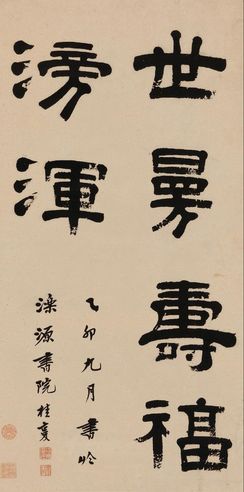 世曼壽福
滂渾
乙卯九月書於
濼源書院桂